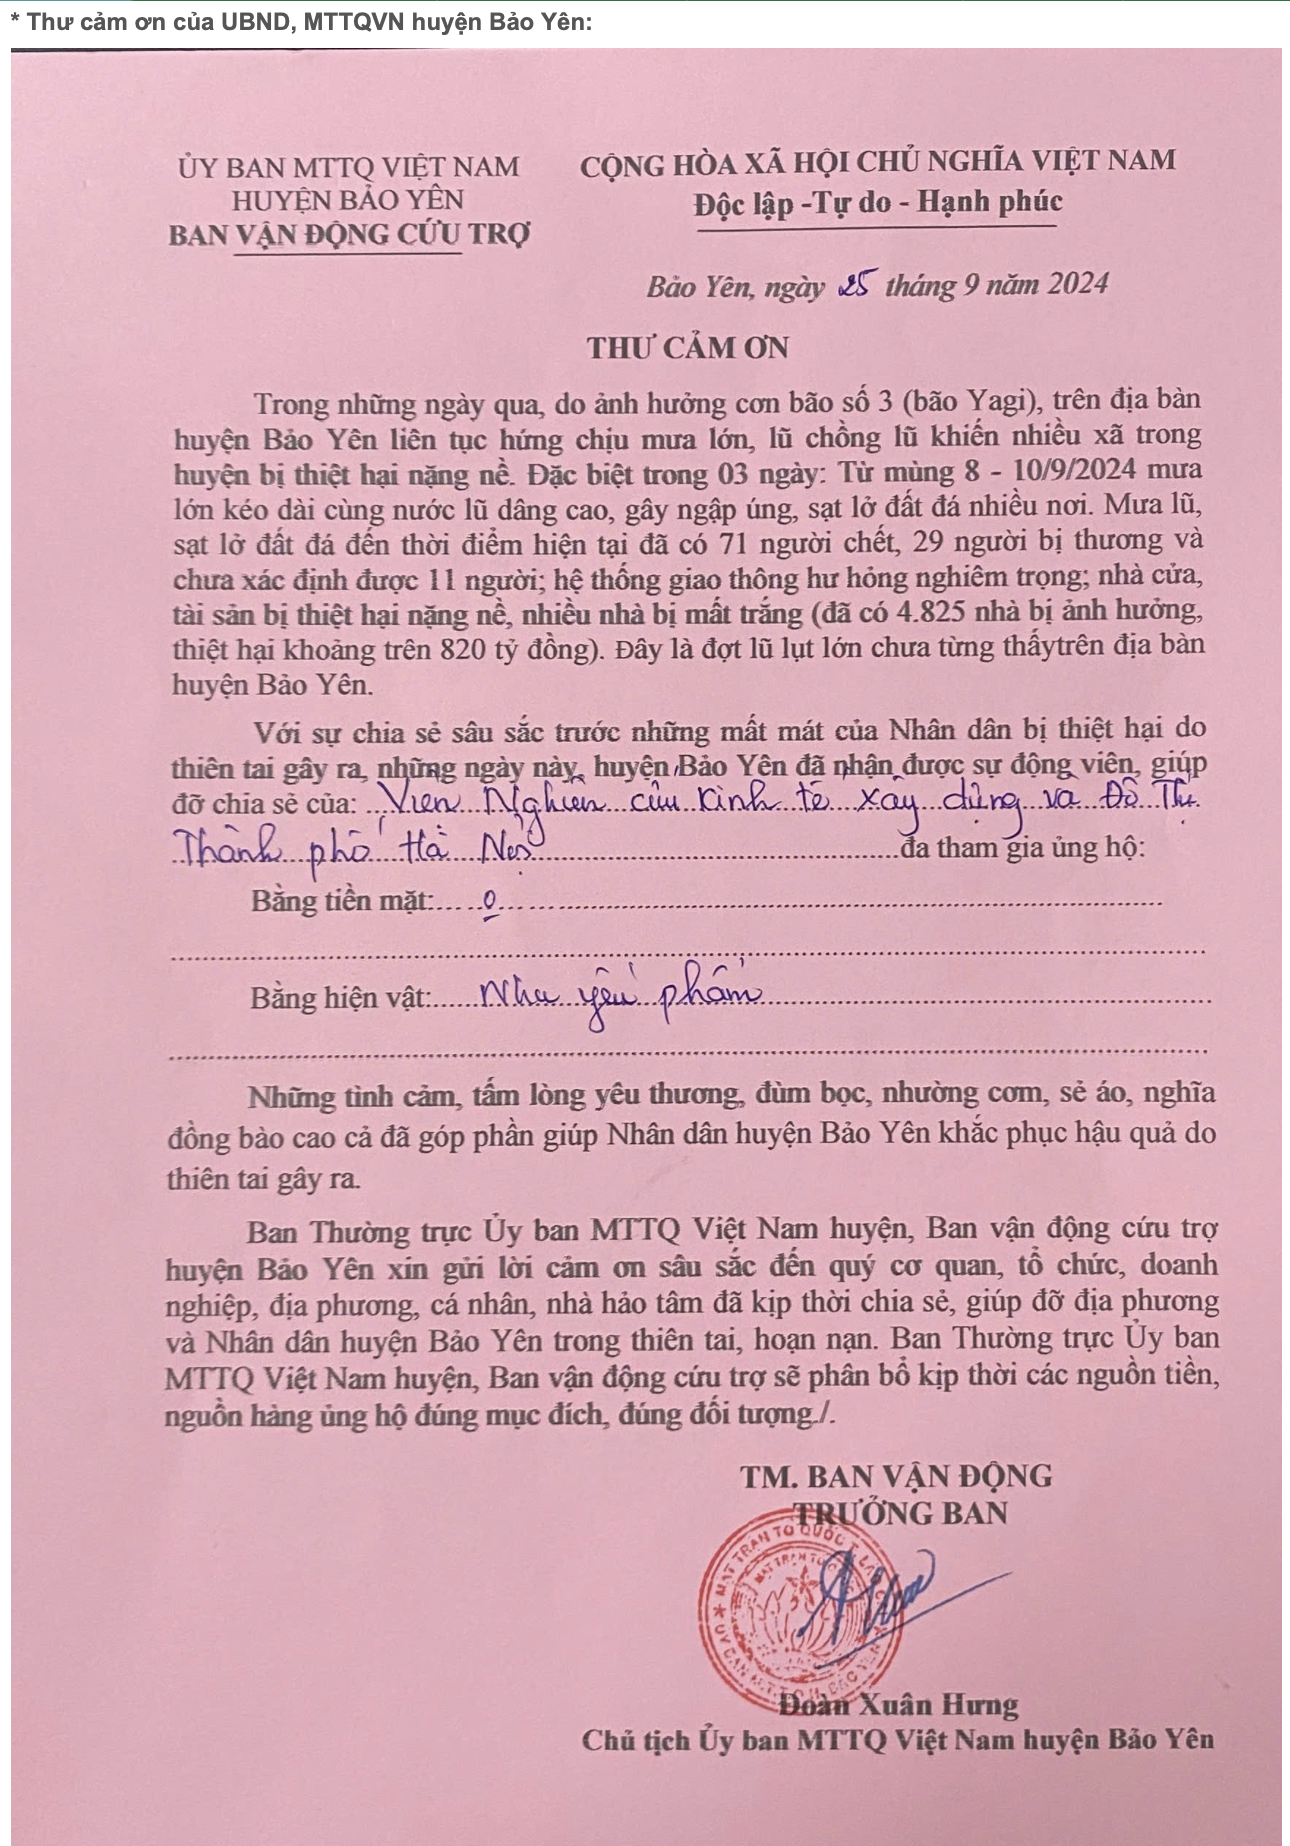 * Thư cảm ơn của UBND, MTTQVN huyện Bảo Yên:
ỦY BAN MTTQ VIỆT NAM
HUYỆN BẢO YÊN
BAN VẬN ĐỘNG CỨU TRỢ
CỘNG HÒA XÃ HỘI CHỦ NGHĨA VIỆT NAM
Độc lập -Tự do - Hạnh phúc
Bảo Yên, ngày 25 tháng 9 năm 2024
THƯ CẢM ƠN
Trong những ngày qua, do ảnh hưởng cơn bão số 3 (bão Yagi), trên địa bàn
huyện Bảo Yên liên tục hứng chịu mưa lớn, lũ chồng lũ khiến nhiều xã trong
huyện bị thiệt hại nặng nề. Đặc biệt trong 03 ngày: Từ mùng 8 - 10/9/2024 mưa
lớn kéo dài cùng nước lũ dâng cao, gây ngập úng, sạt lở đất đá nhiều nơi. Mưa lũ,
sạt lở đất đá đến thời điểm hiện tại đã có 71 người chết, 29 người bị thương và
chưa xác định được 11 người; hệ thống giao thông hư hỏng nghiêm trọng; nhà cửa,
tài sản bị thiệt hại nặng nề, nhiều nhà bị mất trắng (đã có 4.825 nhà bị ảnh hưởng,
thiệt hại khoảng trên 820 tỷ đồng). Đây là đợt lũ lụt lớn chưa từng thấytrên địa bàn
huyện Bảo Yên.
Với sự chia sẻ sâu sắc trước những mất mát của Nhân dân bị thiệt hại do
thiên tai gây ra, những ngày này, huyện Bảo Yên đã nhận được sự động viên, giúp
đỡ chia sẻ của: Viện Nghiên cứu Kinh tế xây dựng và Đô Thị
Thành phố Hà Nội đa tham gia ủng hộ:
Bằng tiền mặt: 0
Bằng hiện vật: Nhu yếu phẩm
Những tình cảm, tấm lòng yêu thương, đùm bọc, nhường cơm, sẻ áo, nghĩa
đồng bào cao cả đã góp phần giúp Nhân dân huyện Bảo Yên khắc phục hậu quả do
thiên tai gây ra.
Ban Thường trực Ủy ban MTTQ Việt Nam huyện, Ban vận động cứu trợ
huyện Bảo Yên xin gửi lời cảm ơn sâu sắc đến quý cơ quan, tổ chức, doanh
nghiệp, địa phương, cá nhân, nhà hảo tâm đã kịp thời chia sẻ, giúp đỡ địa phương
và Nhân dân huyện Bảo Yên trong thiên tai, hoạn nạn. Ban Thường trực Ủy ban
MTTQ Việt Nam huyện, Ban vận động cứu trợ sẽ phân bổ kịp thời các nguồn tiền,
nguồn hàng ủng hộ đúng mục đích, đúng đối tượng./.
TM. BAN VẬN ĐỘNG
TRƯỞNG BAN
Đoàn Xuân Hưng
Chủ tịch Ủy ban MTTQ Việt Nam huyện Bảo Yên